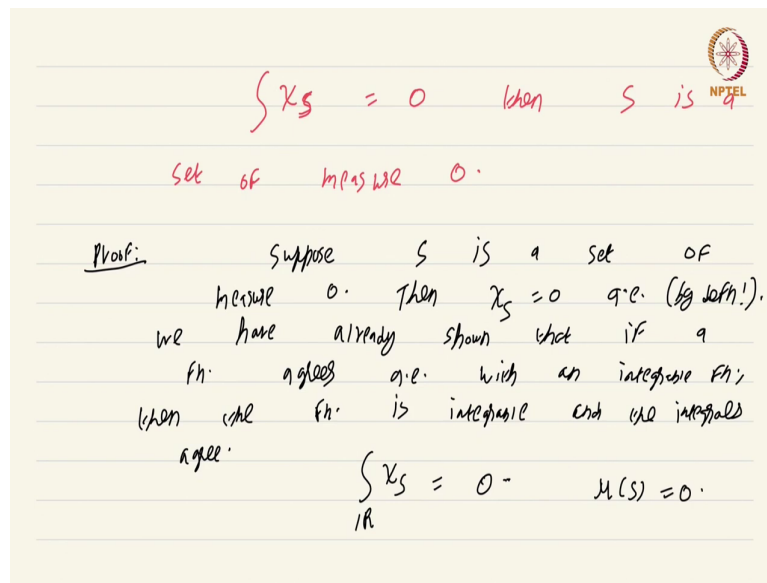 ∫ χ_S = 0 then S is a
NPTEL
set of measure 0.
Proof: Suppose S is a set of
measure 0. Then χ_S = 0 a.e. (by defn!).
we have already shown that if a
Fn. agrees a.e. with an integrable Fn;
then the Fn. is integrable and the integrals
agree.
∫_ℝ χ_S = 0 - μ(S) = 0.